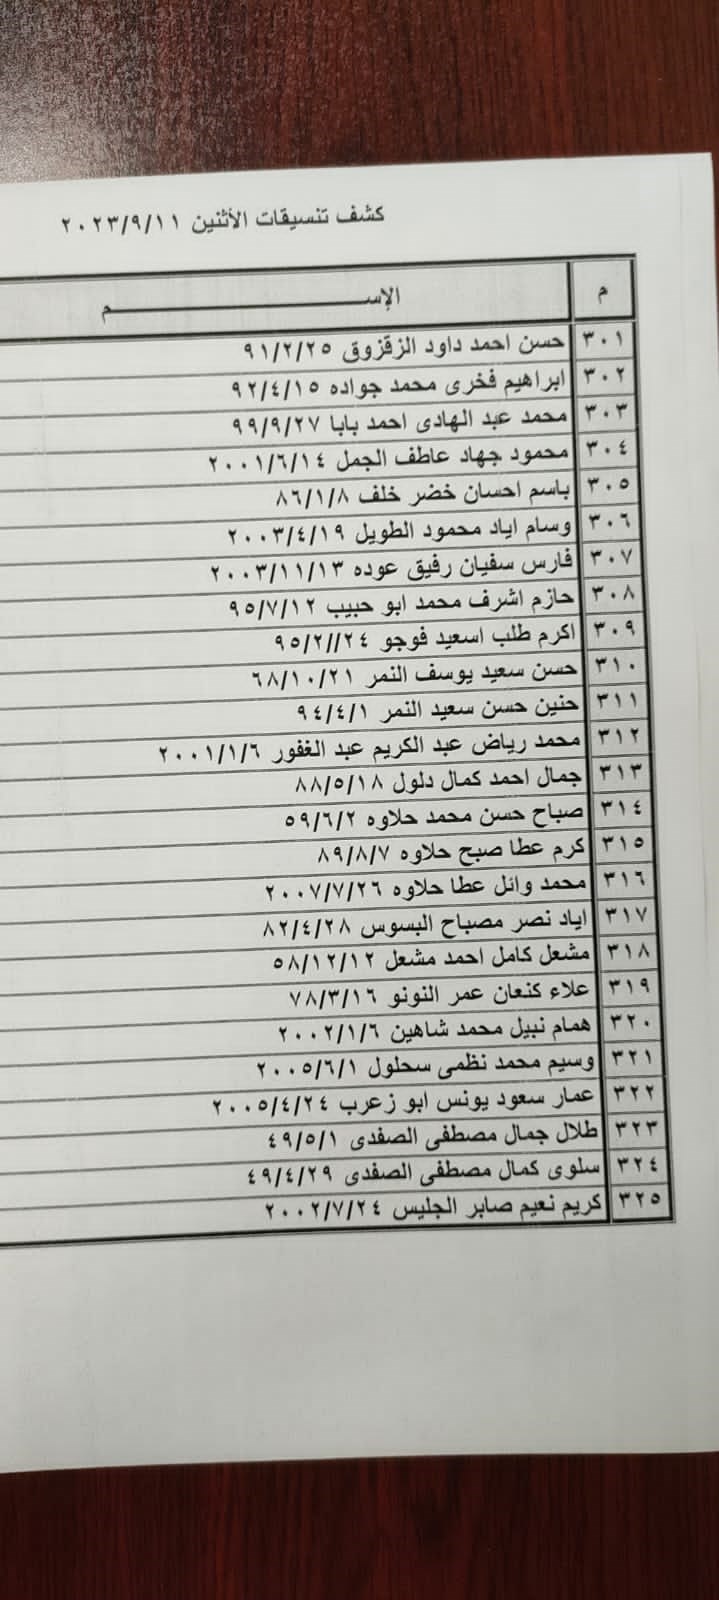 كشف تنسيقات الأثنين ٢٠٢٣/٩/١١
م الإســـــــــــــــــــم
٣٠١ حسن احمد داود الزقزوق ٩١/٢/٢٥
٣٠٢ ابراهيم فخرى محمد جواده ٩٢/٤/١٥
٣٠٣ محمد عبد الهادى احمد بابا ٩٩/٩/٢٧
٣٠٤ محمود جهاد عاطف الجمل ٢٠٠١/٦/١٤
٣٠٥ باسم احسان خضر خلف ٨٦/١/٨
٣٠٦ وسام اياد محمود الطويل ٢٠٠٣/٤/١٩
٣٠٧ فارس سفيان رفيق عوده ٢٠٠٣/١١/١٣
٣٠٨ حازم اشرف محمد ابو حبيب ٩٥/٧/١٢
٣٠٩ اكرم طلب اسعيد فوجو ٩٥/٢//٢٤
٣١٠ حسن سعيد يوسف النمر ٦٨/١٠/٢١
٣١١ حنين حسن سعيد النمر ٩٤/٤/١
٣١٢ محمد رياض عبد الكريم عبد الغفور ٢٠٠١/١/٦
٣١٣ جمال احمد كمال دلول ٨٨/٥/١٨
٣١٤ صباح حسن محمد حلاوه ٥٩/٦/٢
٣١٥ كرم عطا صبح حلاوه ٨٩/٨/٧
٣١٦ محمد وائل عطا حلاوه ٢٠٠٧/٧/٢٦
٣١٧ اياد نصر مصباح البسوس ٨٢/٤/٢٨
٣١٨ مشعل كامل احمد مشعل ٥٨/١٢/١٢
٣١٩ علاء كنعان عمر النونو ٧٨/٣/١٦
٣٢٠ همام نبيل محمد شاهين ٢٠٠٢/١/٦
٣٢١ وسيم محمد نظمى سحلول ٢٠٠٥/٦/١
٣٢٢ عمار سعود يونس ابو زعرب ٢٠٠٥/٤/٢٤
٣٢٣ طلال جمال مصطفى الصفدى ٤٩/٥/١
٣٢٤ سلوى كمال مصطفى الصفدى ٤٩/٤/٢٩
٣٢٥ كريم نعيم صابر الجليس ٢٠٠٢/٧/٢٤